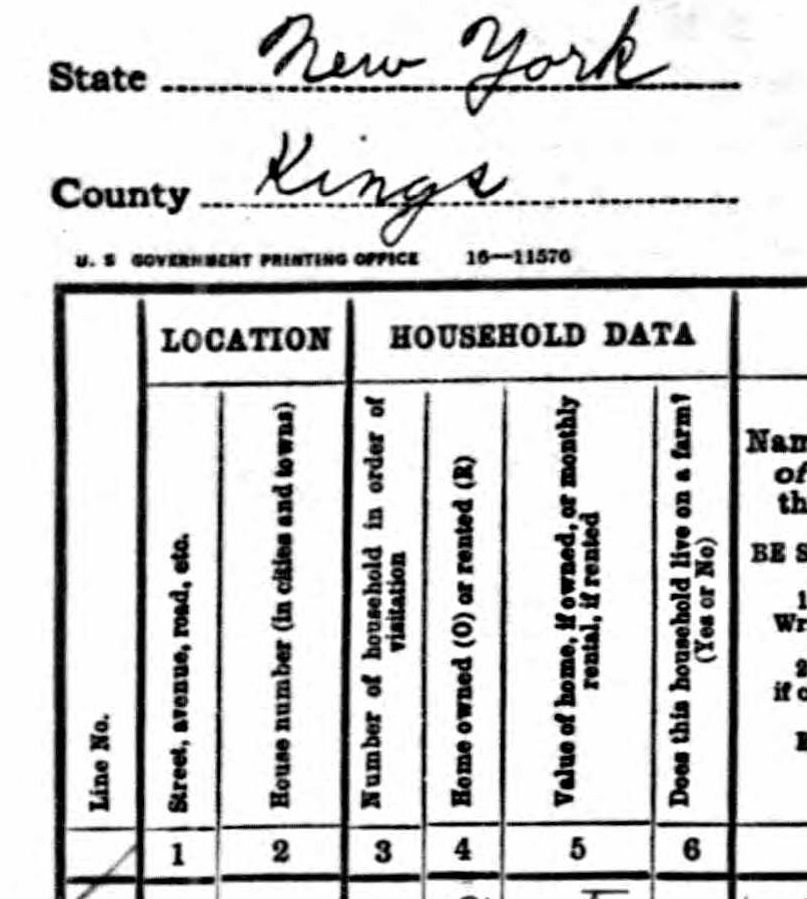 State New York
County Kings
U. S GOVERNMENT PRINTING OFFICE 16—11576
LOCATION
HOUSEHOLD DATA
Line No.
Street, avenue, road, etc.
House number (in cities and towns)
Number of household in order of
visitation
Home owned (O) or rented (R)
Value of home, if owned, or monthly
rental, if rented
Does this household live on a farm?
(Yes or No)
Nam
of
th
BE S
1
Wr
2
if o
1 2 3 4 5 6